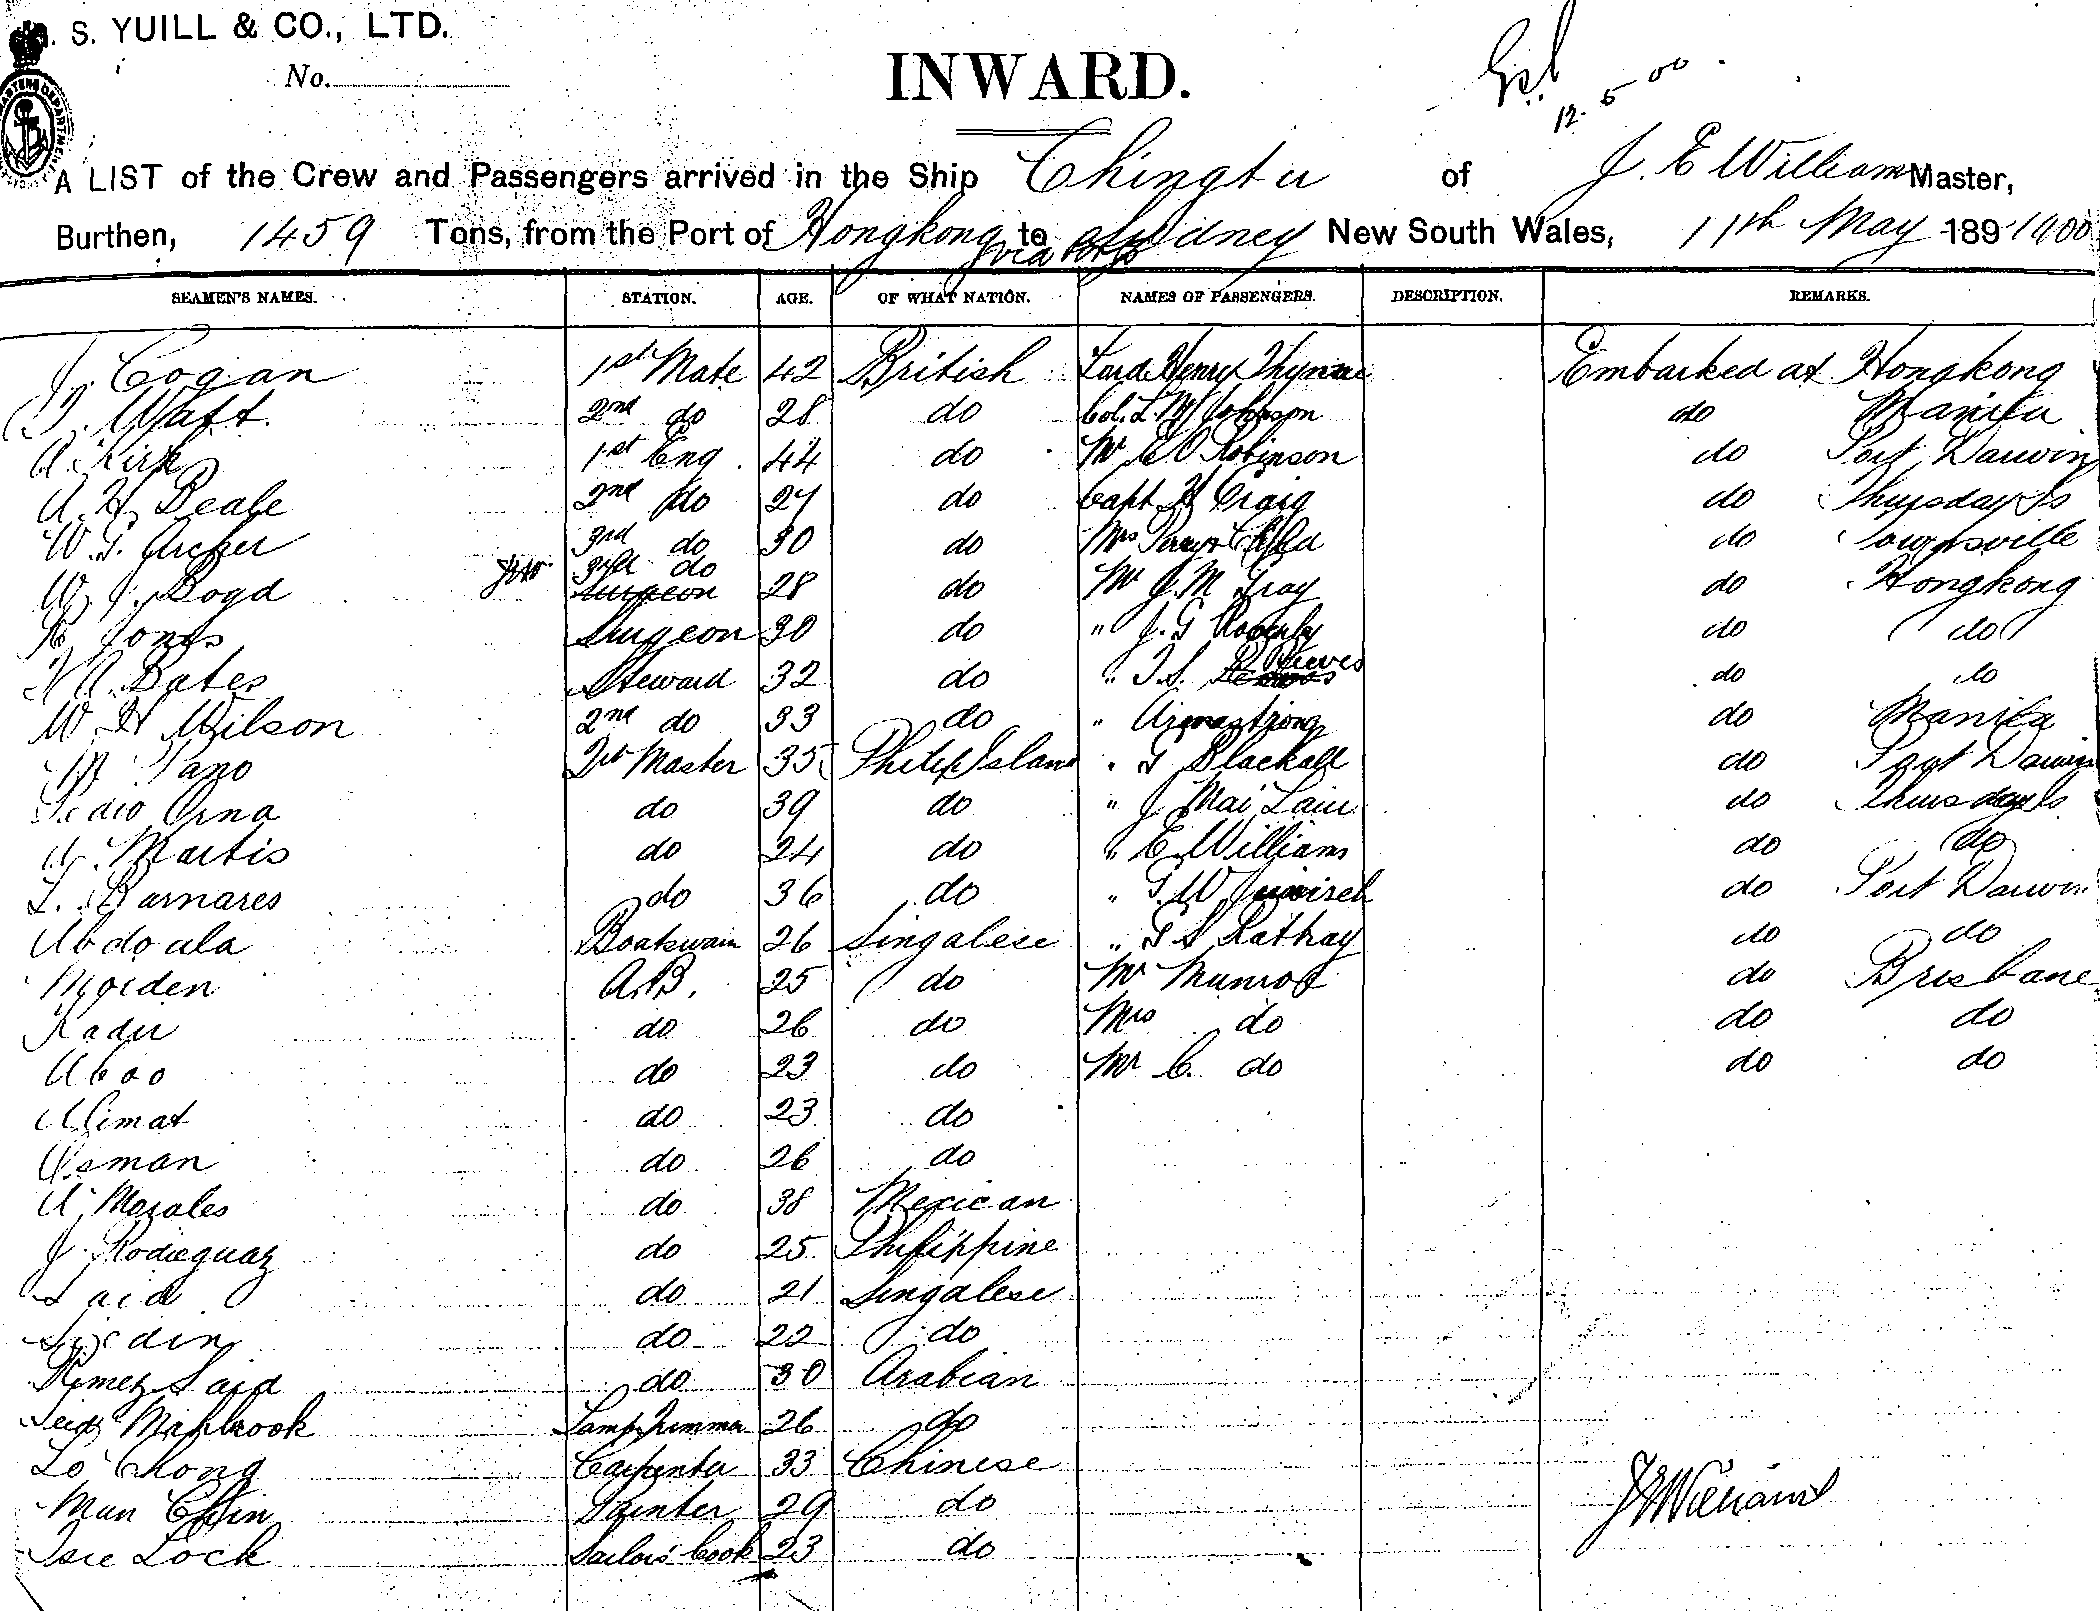 . S. YUILL & CO., LTD.
No.
INWARD.
12. 5 00
A LIST of the Crew and Passengers arrived in the Ship Chingtu of J. E Williams Master,
Burthen, 1459 Tons, from the Port of Hongkong via Ports to Sydney New South Wales, 11th May 189 1900
SEAMEN'S NAMES. STATION. AGE. OF WHAT NATION. NAMES OF PASSENGERS. DESCRIPTION. REMARKS.
J. Cogan 1st Mate 42 British Lord Henry Thynne Embarked at Hongkong
Watt. 2nd do 28 do Col. L. Johnson do Manila
A. Kirk 1st Eng. 44 do Mr Robinson do Port Darwin
A. H. Beale 2nd do 27 do Capt H Craig do Thursday Is
W. G. Archer 3rd do 30 do Mrs Child do Townsville
W. J. Boyd do Surgeon 28 do Mr J. M Gray do Hongkong
Jones Surgeon 30 do " J. G do do
A. Bates Steward 32 do " T. S. Reeves do do
W. H Wilson 2nd do 33 do " Armstrong do Manila
Pano Qr Master 35 Philip Island " G Blackall do Port Darwin
Orna do 39 do " J Mai Lain do Thursday Is
Martis do 24 do " E. Williams do do
L. Barnares do 36 do " do Port Darwin
Abdoula Boatswain 26 Singalese " G S Rathay do do
Moiden A.B. 25 do Mr Munro do Brisbane
Kadir do 26 do Mrs do do do
Aboo do 23 do Mr C. do do do
Alimat do 23 do
Osman do 26 do
A. Morales do 38 Mexican
J. Rodieguaz do 25 Philippine
Said do 21 Singalese
do 22 do
Said do 30 Arabian
Mabrook Lamp Trimmer 26 do
Lo Chong Carpenter 33 Chinese
Man Chin Painter 29 do
Lock Sailors' Cook 23 do
J E Williams